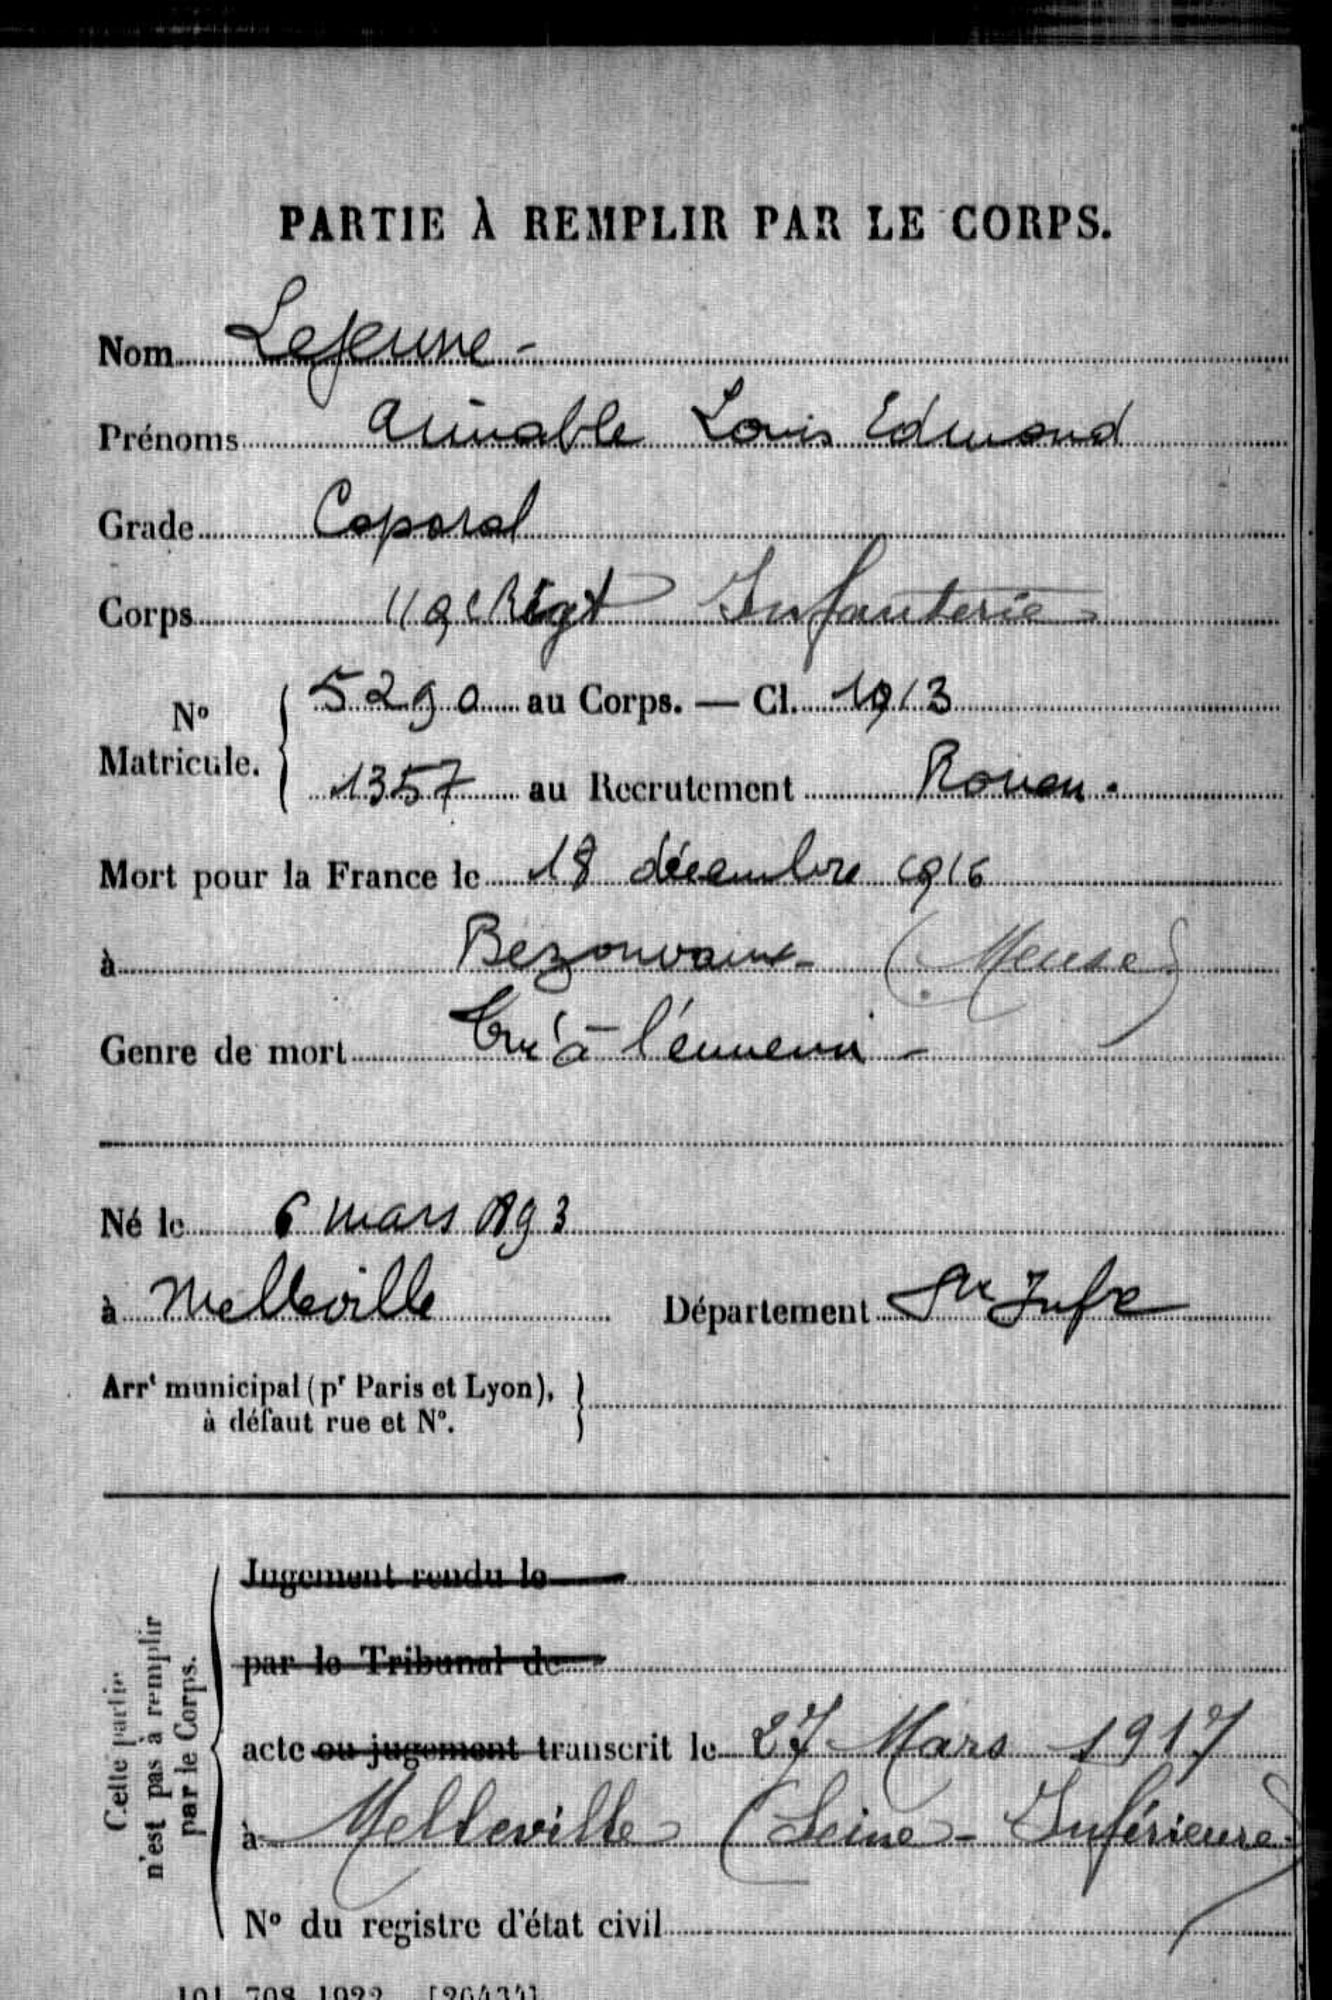 PARTIE À REMPLIR PAR LE CORPS.
Nom Lejeune -
Prénoms Aimable Louis Edmond
Grade Caporal
Corps 119e Régt Infanterie
N° Matricule. { 5290 au Corps. — Cl. 1913
1357 au Recrutement Rouen.
Mort pour la France le 18 décembre 1916
à Bezonvaux - (Meuse)
Genre de mort Tué à l'ennemi -
Né le 6 mars 1893
à Melleville Département Sne Infre
Arrt municipal (pr Paris et Lyon), }
à défaut rue et N°.
Celle partie n'est pas à remplir par le Corps.
Jugement rendu le
par le Tribunal de
acte ou jugement transcrit le 27 Mars 1917
à Melleville (Seine-Inférieure)
N° du registre d'état civil
101 708 1922 [26434]